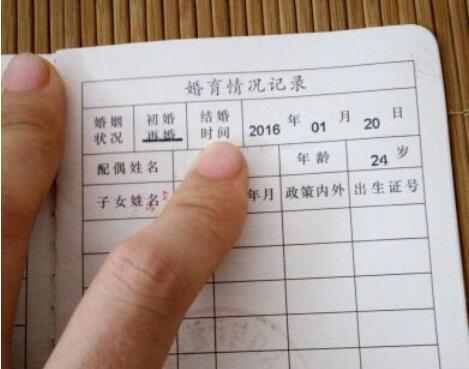 婚育情况记录
婚姻状况 初婚 再婚 结婚时间 2016 年 01 月 20 日
配偶姓名 年龄 24 岁
子女姓名 年月 政策内外 出生证号